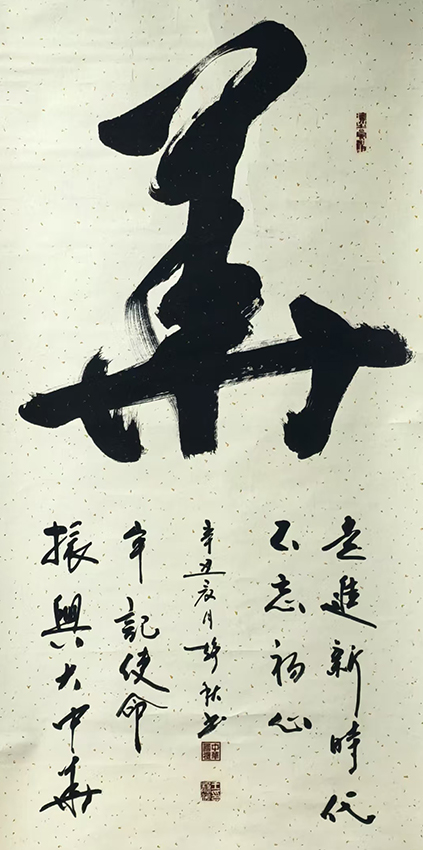 華
走進新時代
不忘初心
辛丑辰月 秋书
牢記使命
振興大中華